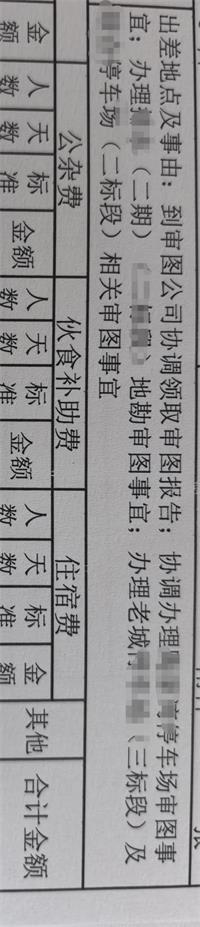 出差地点及事由：到审图公司协调领取审图报告；协调办理停车场审图事
宜；办理（二期）地勘审图事宜；办理老城（三标段）及
停车场（二标段）相关审图事宜
公杂费 伙食补助费 住宿费 其他 合计金额
金额 人数 天数 标准 金额 人数 天数 标准 金额 人数 天数 标准 金额